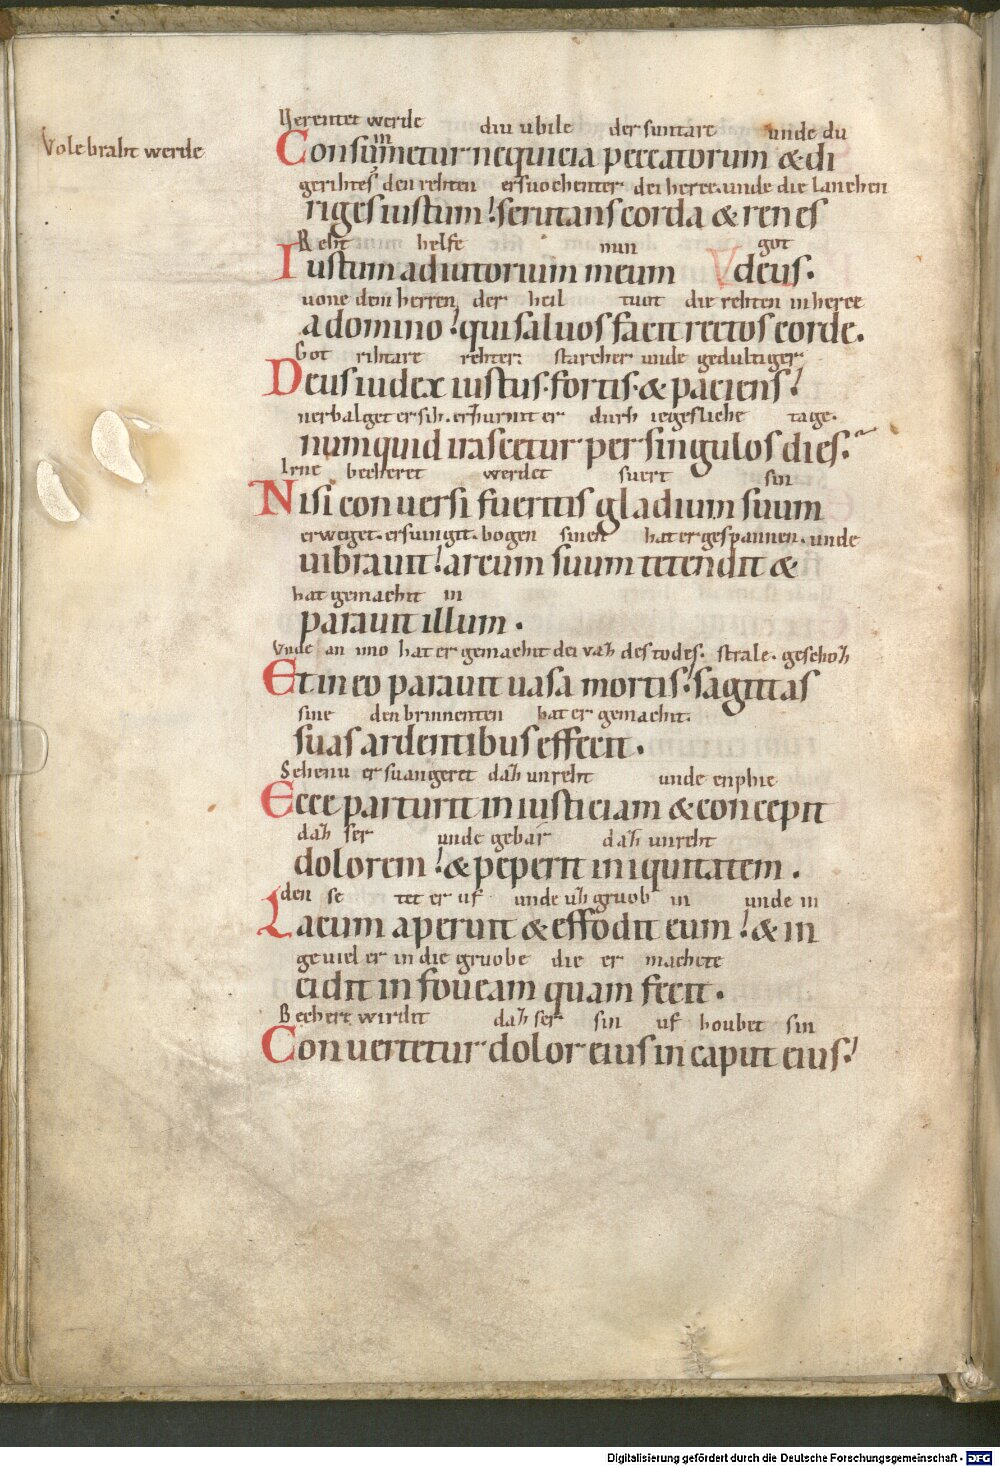 Volebraht werde
Verentet werde diu ubile der suntare unde du
Consummetur nequicia peccatorum & di
gerihtes den rehten ersuochenter dei herce. unde die lanchen
riges iustum! scrutans corda & renes
Reht helfe min got
Iustum adiutorium meum deus.
uone dem herren der heil tuot die rehten in herce
a domino! qui saluos facit rectos corde.
Got rihtare rehter starcher unde gedultiger
Deus iudex iustus. fortis. & paciens!
nerbalget er sih. erzurnit er durh iegesliche tage.
numquid irascetur per singulos dies.
Irne becheret werdet suert sin
Nisi conuersi fueritis gladium suum
erweget. ersuingit. bogen sinen hat er gespannen. unde
uibrauit! arcum suum tetendit &
hat gemachit in
parauit illum.
Unde an imo hat er gemachit dei vaz des todes. strale. geschoz
Et in eo parauit uasa mortis! sagittas
sine den brinnenten hat er gemachit.
suas ardentibus effecit.
Sehenu er suangeret daz unreht unde enphie
Ecce parturit iniusticiam & concepit
daz ser unde gebar daz unreht
dolorem! & peperit iniquitatem.
den se tet er uf unde uz gruob in unde in
Lacum aperuit & effodit eum! & in
geuiel er in die gruobe die er machete
cidit in foueam quam fecit.
Bechert wirdit daz ser sin uf houbet sin
Conuertetur dolor eius in caput eius!
Digitalisierung gefördert durch die Deutsche Forschungsgemeinschaft - DFG